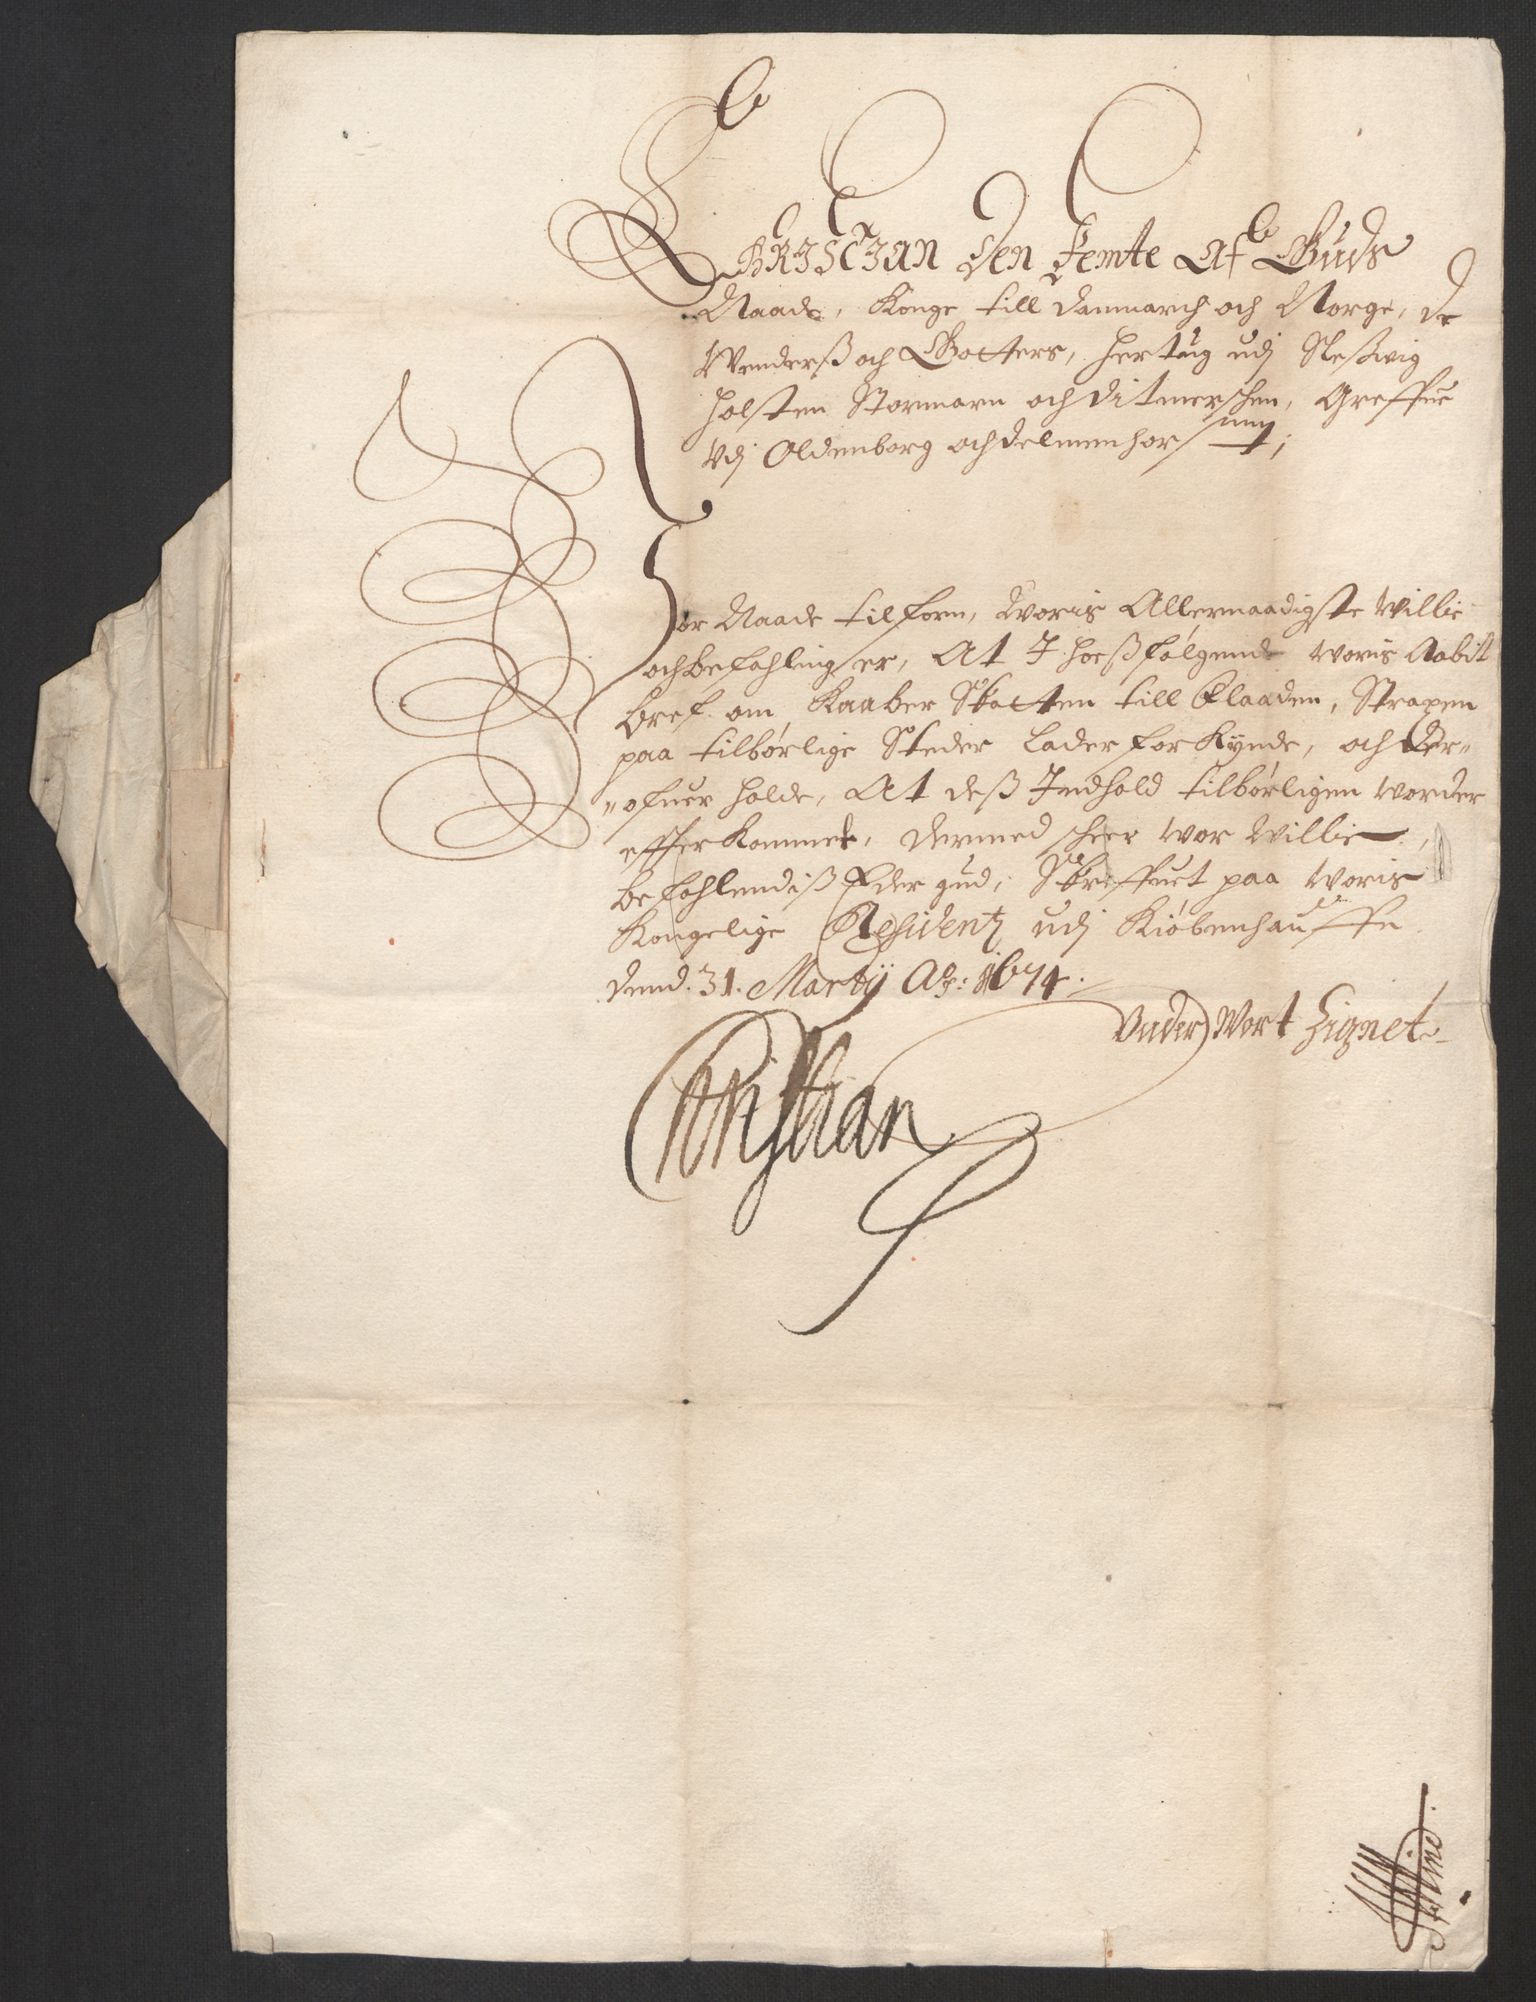 CHRISTIAN Den Femte Af Guds
Naade, Konge till Danmarch och Norge, de
Wenderß och Gotters, Hertug udj Sleßwig
Holsten Stormarn och Ditmerschen, Greffue
Vdj Oldenborg och Delmenhorst;
Vor Naade tilforn, Woris Allernaadigste Willie
och befahling er, At I hoßfølgende Woris Aabit
bref om Kaaber Skatten till Flaaden, Strapen
paa tilbørlige Steder lader forKynde, och der-
-ofuer holde, At deß Indhold tilbørligen worder
effterkommet, dermed scheer wor Willie,
befahlendiß Eder gud, Skreffuet paa Woris
Kongelige Residentz udj Kiøbenhauffn
dend. 31. Martij Ao: 1674.
Under Wort Zignet
Christian